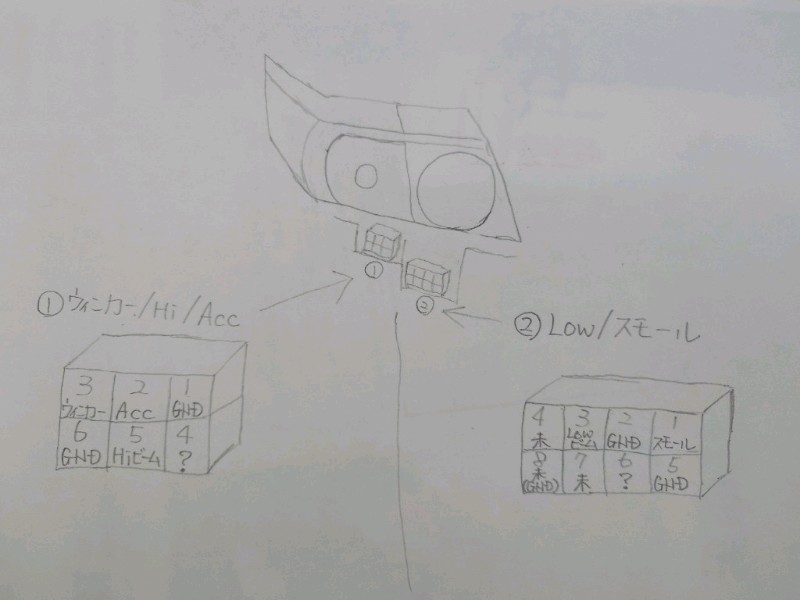 ①
②
①ウィンカー/Hi/Acc
②Low/スモール
3 2 1
ウィンカー Acc GND
6 5 4
GND Hiビーム ?
4 3 2 1
未 Lowビーム GND スモール
8 7 6 5
未(GND) 未 ? GND